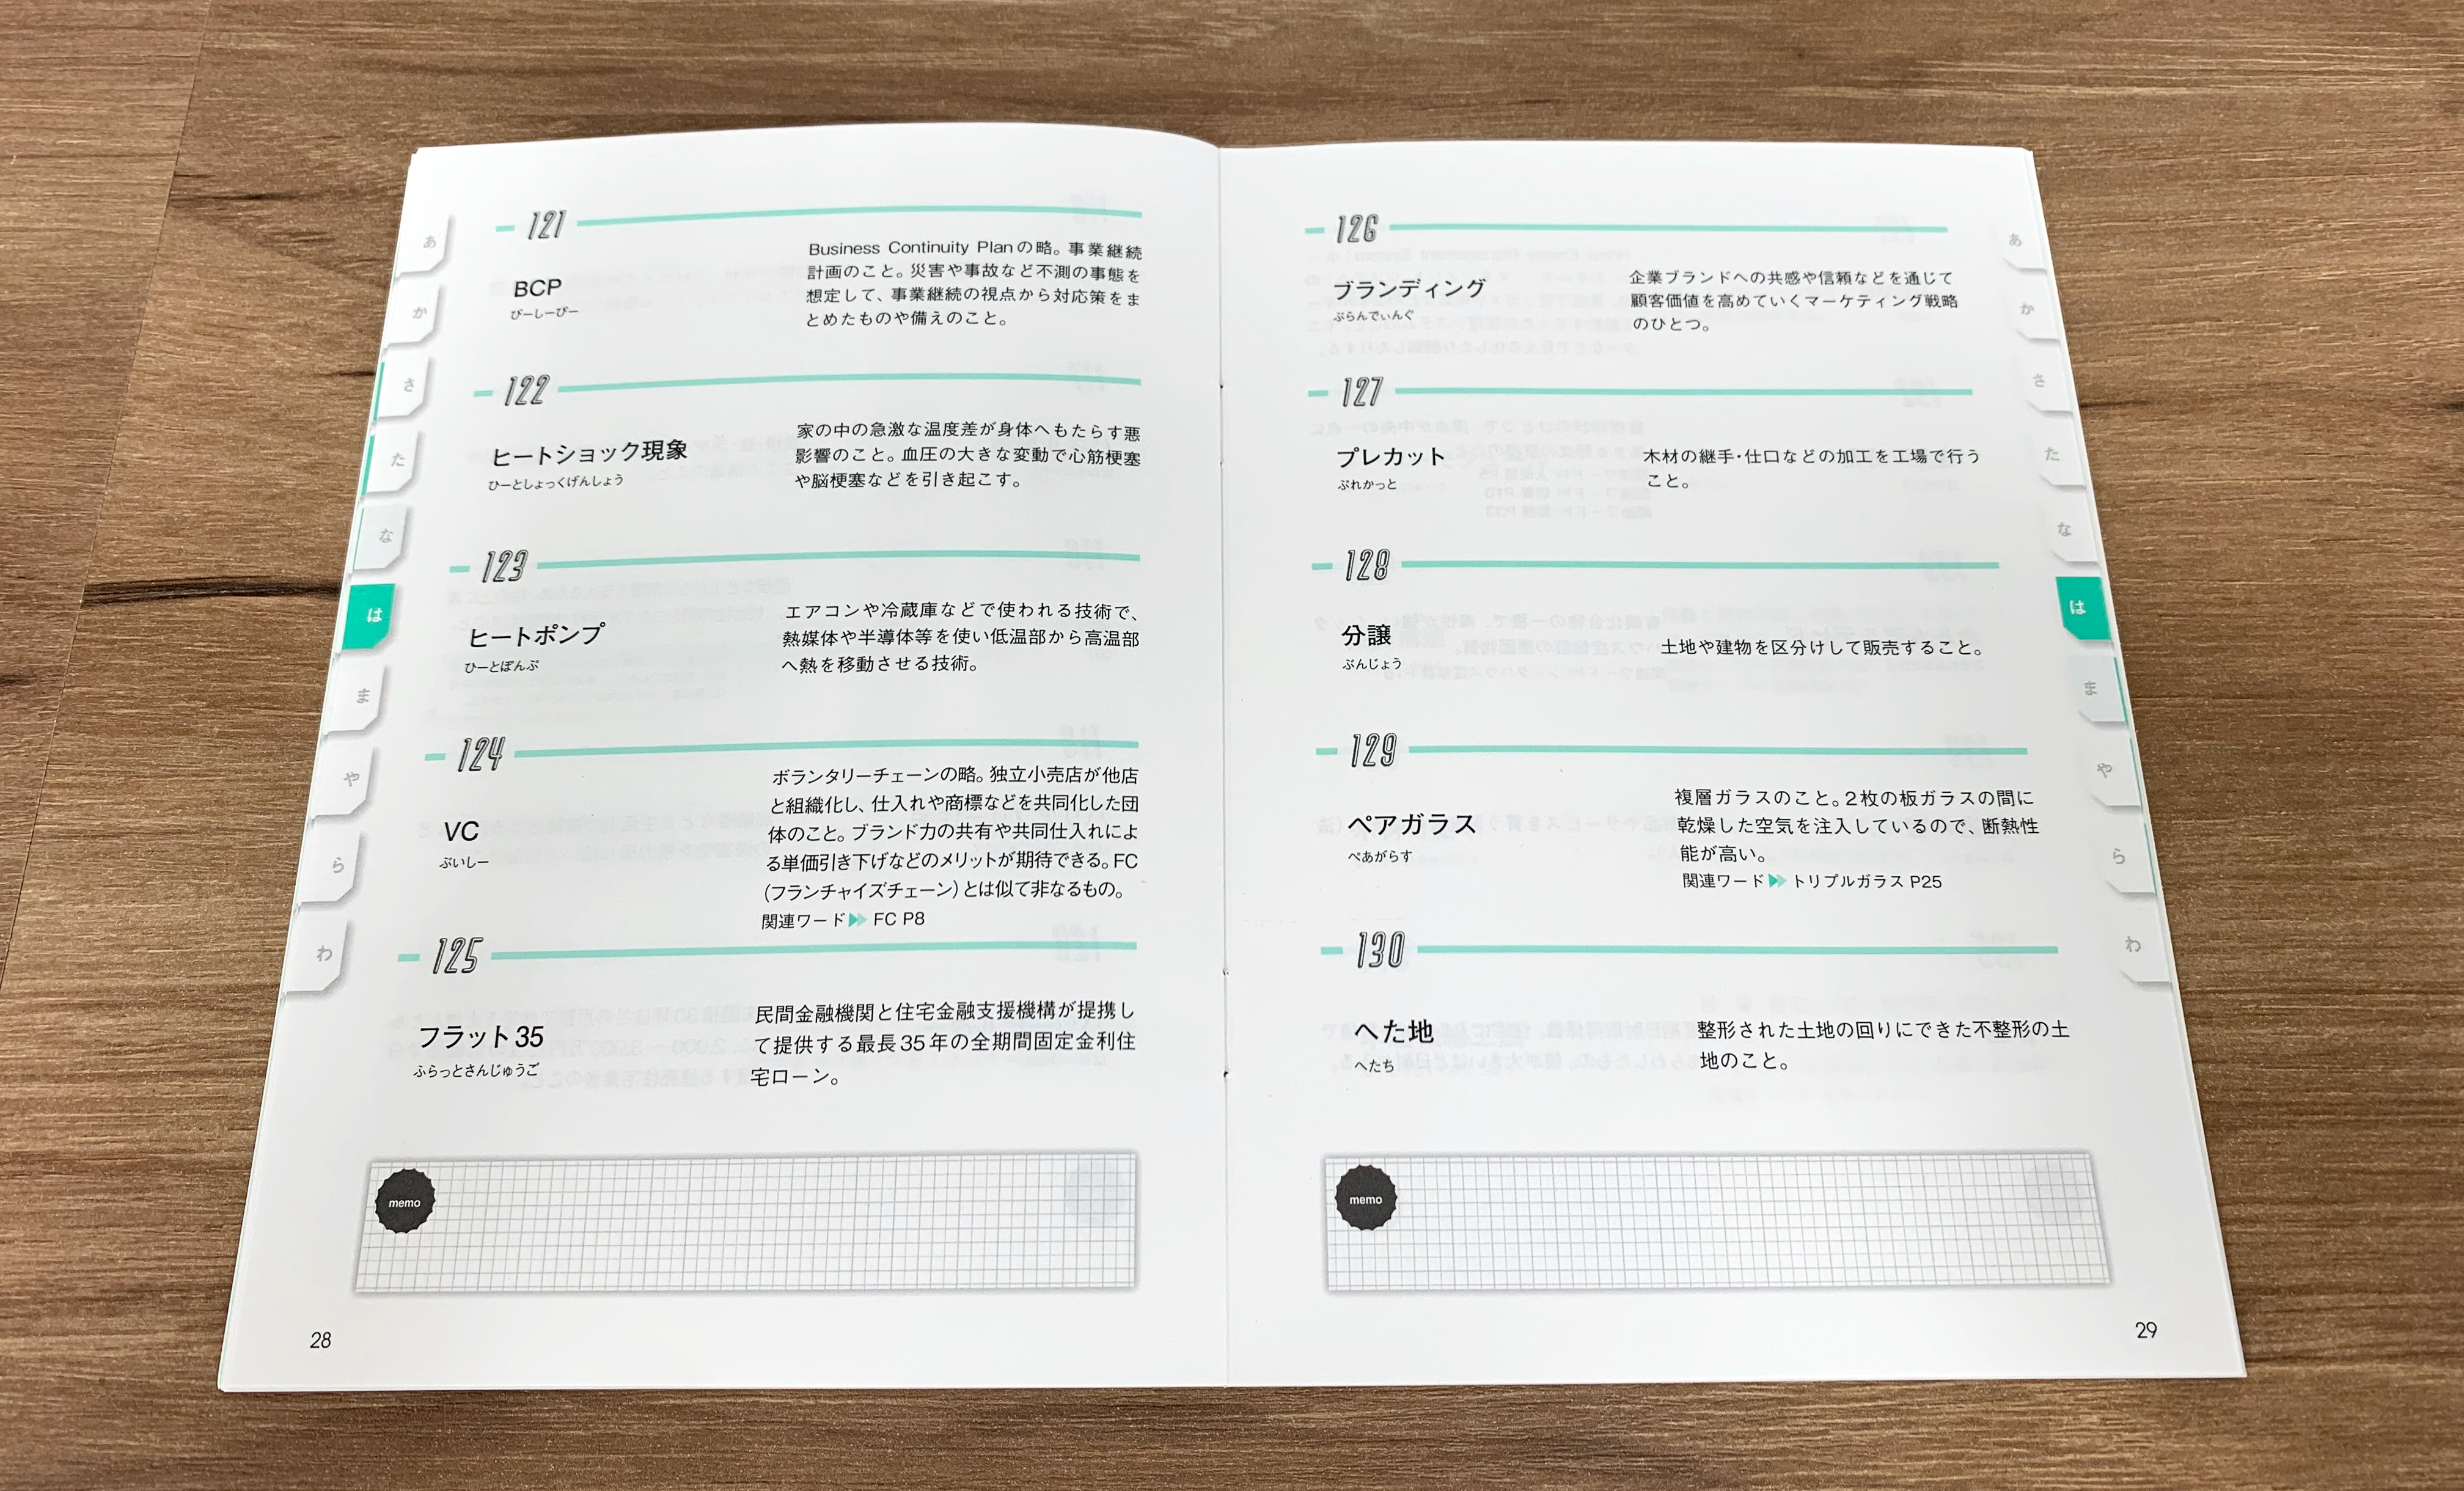 あ
か
さ
た
な
は
ま
や
ら
わ
121
BCP
びーしーぴー
Business Continuity Planの略。事業継続
計画のこと。災害や事故など不測の事態を
想定して、事業継続の視点から対応策をま
とめたものや備えのこと。
122
ヒートショック現象
ひーとしょっくげんしょう
家の中の急激な温度差が身体へもたらす悪
影響のこと。血圧の大きな変動で心筋梗塞
や脳梗塞などを引き起こす。
123
ヒートポンプ
ひーとぽんぷ
エアコンや冷蔵庫などで使われる技術で、
熱媒体や半導体等を使い低温部から高温部
へ熱を移動させる技術。
124
VC
ぶいしー
ボランタリーチェーンの略。独立小売店が他店
と組織化し、仕入れや商標などを共同化した団
体のこと。ブランド力の共有や共同仕入れによ
る単価引き下げなどのメリットが期待できる。FC
(フランチャイズチェーン)とは似て非なるもの。
関連ワード FC P8
125
フラット35
ふらっとさんじゅうご
民間金融機関と住宅金融支援機構が提携し
て提供する最長35年の全期間固定金利住
宅ローン。
memo
28
126
ブランディング
ぶらんでぃんぐ
企業ブランドへの共感や信頼などを通じて
顧客価値を高めていくマーケティング戦略
のひとつ。
127
プレカット
ぷれかっと
木材の継手・仕口などの加工を工場で行う
こと。
128
分譲
ぶんじょう
土地や建物を区分けして販売すること。
129
ペアガラス
ぺあがらす
複層ガラスのこと。2枚の板ガラスの間に
乾燥した空気を注入しているので、断熱性
能が高い。
関連ワード トリプルガラス P25
130
へた地
へたち
整形された土地の回りにできた不整形の土
地のこと。
memo
29
あ
か
さ
た
な
は
ま
や
ら
わ